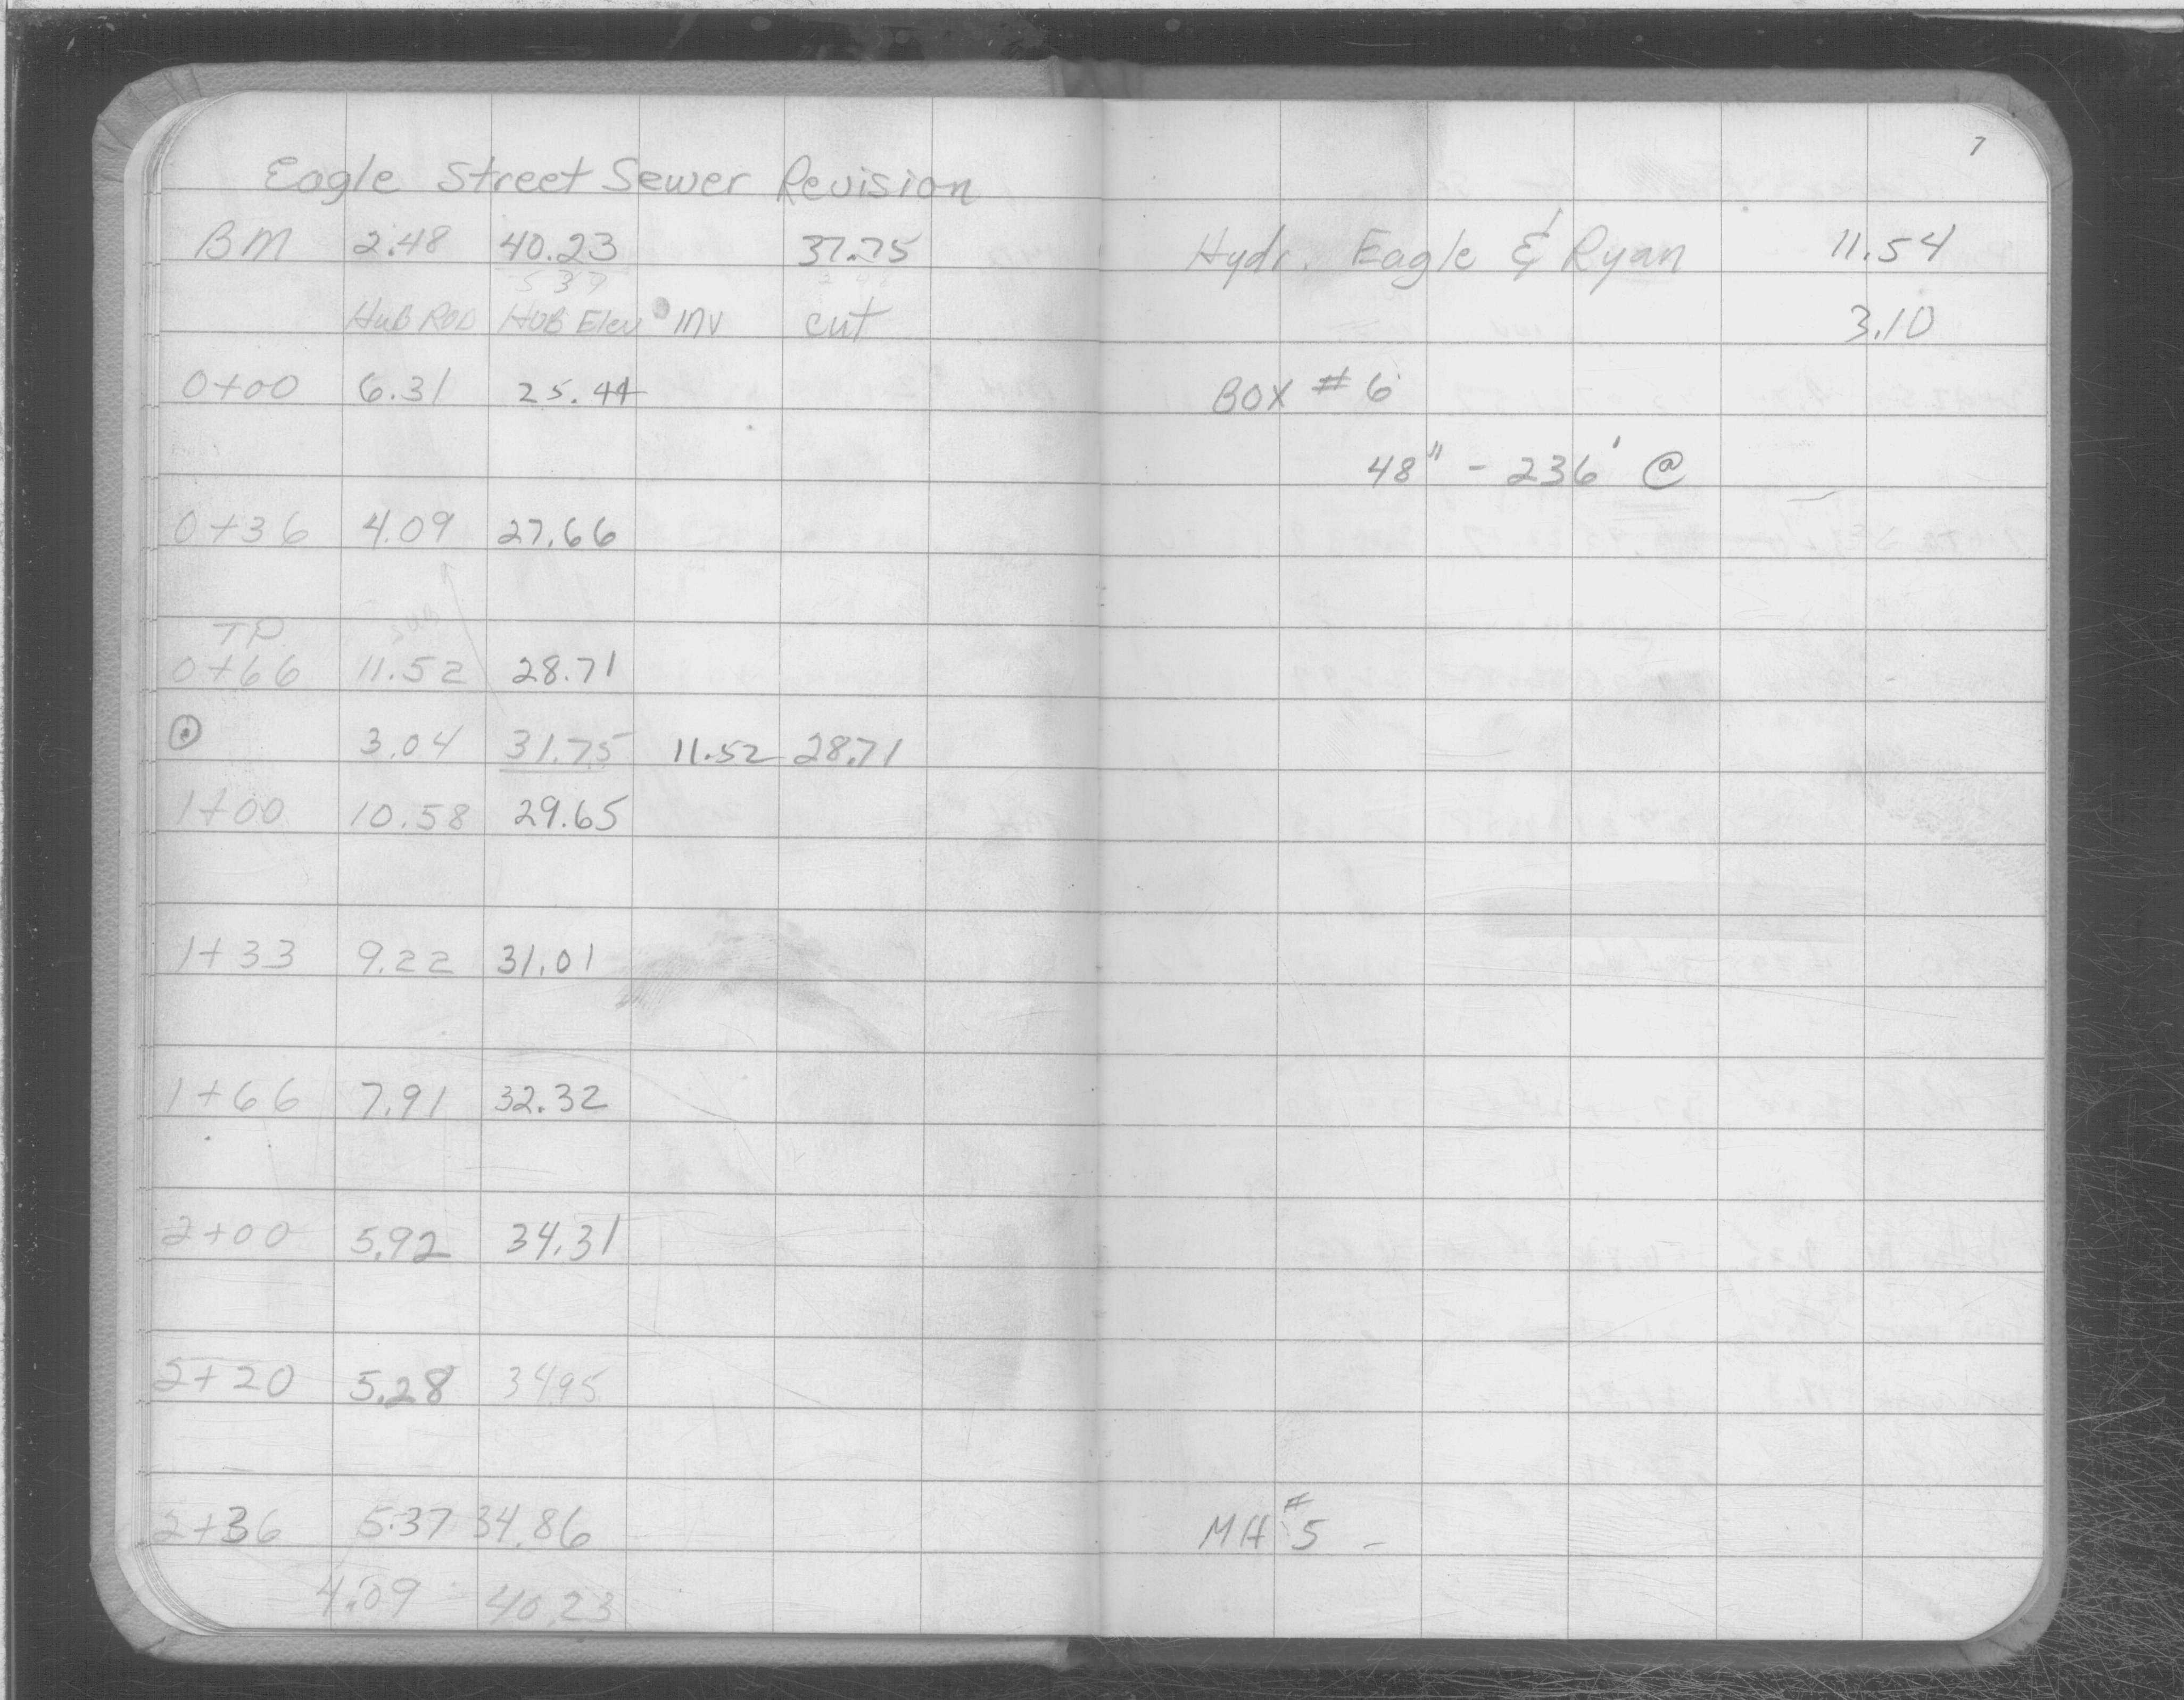 7
Eagle Street Sewer Revision
BM 2.48 40.23 37.75 Hydr. Eagle & Ryan 11.54
5 37
Hub Rod Hub Elev Inv cut 3.10
0+00 6.31 25.44 Box # 6
48" - 236' @
0+36 4.09 27.66
TP
0+66 11.52 28.71
⊙ 3.04 31.75 11.52 28.71
1+00 10.58 29.65
1+33 9.22 31.01
1+66 7.91 32.32
2+00 5.92 34.31
2+20 5.28 34.95
2+36 5.37 34.86 MH #5 -
4.09 40.23